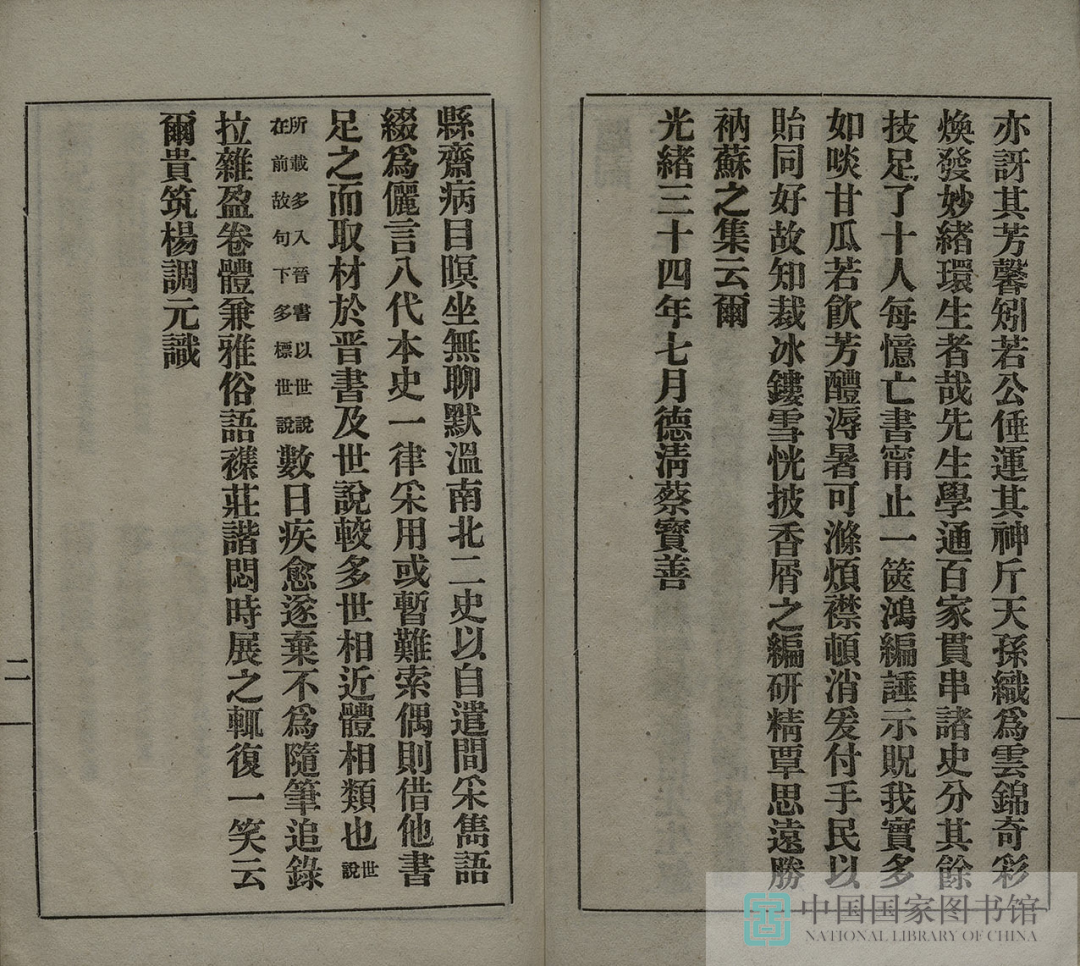 亦訝其芳馨矧若公倕運其神斤天孫織爲雲錦奇彩
煥發妙緒環生者哉先生學通百家貫串諸史分其餘
技足了十人每憶亡書甯止一篋鴻編誰示貺我實多
如啖甘瓜若飮芳醴溽暑可滌煩襟頓消爰付手民以
貽同好故知裁冰鏤雪恍披香屑之編研精覃思遠勝
衲蘇之集云爾
光緒三十四年七月德淸蔡寶善
縣齋病目暝坐無聊默溫南北二史以自遣間采雋語
綴爲儷言八代本史一律采用或暫難索偶則借他書
足之而取材於晋書及世說較多世相近體相類也世說
所載多入晉書以世說在前故句下多標世說數日疾愈遂棄不爲隨筆追錄
拉雜盈卷體兼雅俗語襍莊諧悶時展之輒復一笑云
爾貴筑楊調元識
二
中国国家图书馆
NATIONAL LIBRARY OF CHINA